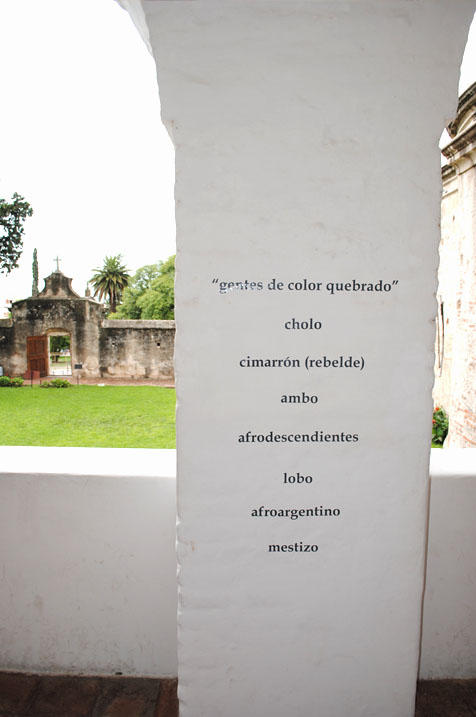 “gentes de color quebrado”
cholo
cimarrón (rebelde)
ambo
afrodescendientes
lobo
afroargentino
mestizo